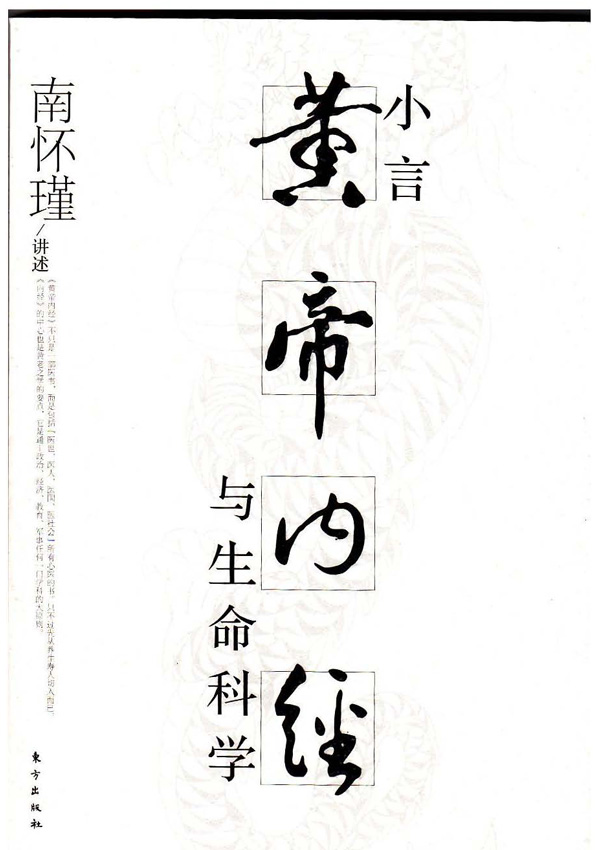 小言
黄帝内经
与生命科学
南怀瑾
/讲述
《黄帝内经》不只是一部医书，而是包括“医世、医人、医国、医社会”所有心医的书，只不过先从养生寿人切入而已。
《内经》的中心也是黄老之学的要点，它是通于政治、经济、教育、军事任何一门学科的大原则。
東方出版社